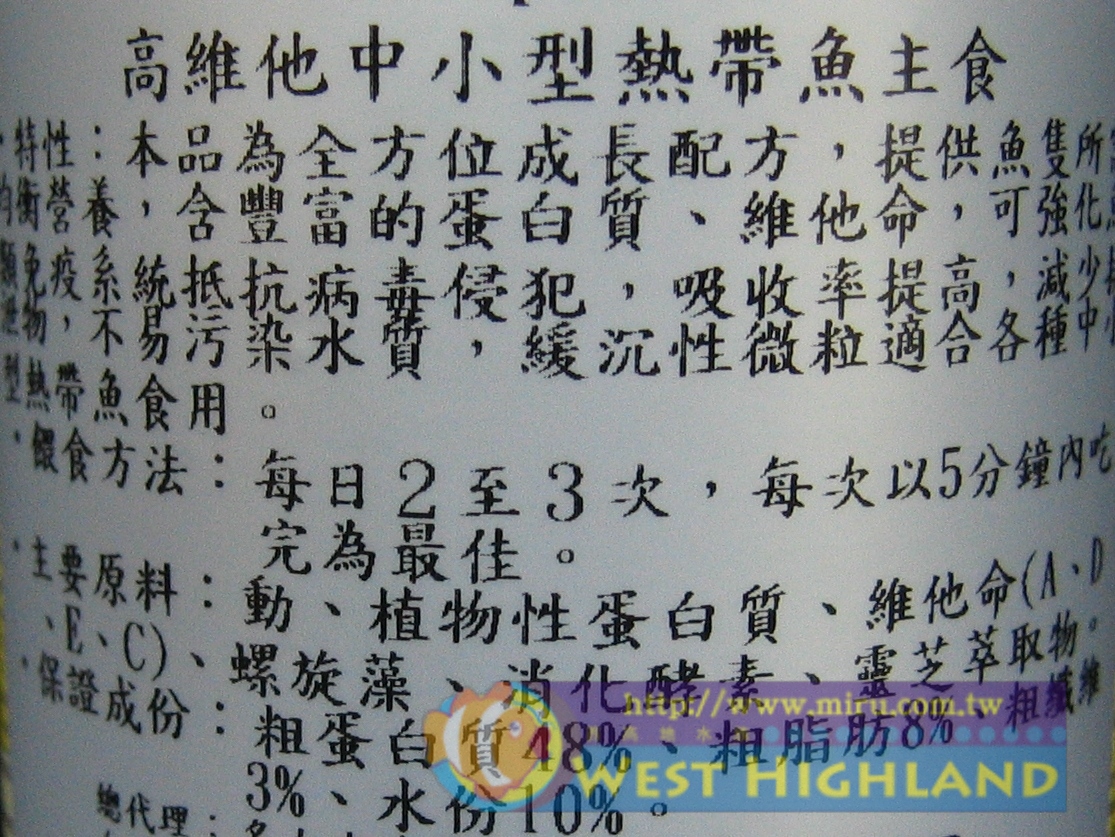 高維他中小型熱帶魚主食
．特性：本品為全方位成長配方，提供魚隻所
均衡營養，含豐富的蛋白質、維他命，可強化
類免疫系統抵抗病毒侵犯，吸收率提高，減少
泄物，不易污染水質，緩沉性微粒適合各種中
型熱帶魚食用。
．餵食方法：每日2至3次，每次以5分鐘內吃
完為最佳。
．主要原料：動、植物性蛋白質、維他命(A、D
、E、C)、螺旋藻、消化酵素、靈芝萃取物。
．保證成份：粗蛋白質48%、粗脂肪8%、粗纖維
3%、水份10%。
總代理：
http://www.miru.com.tw
WEST HIGHLAND